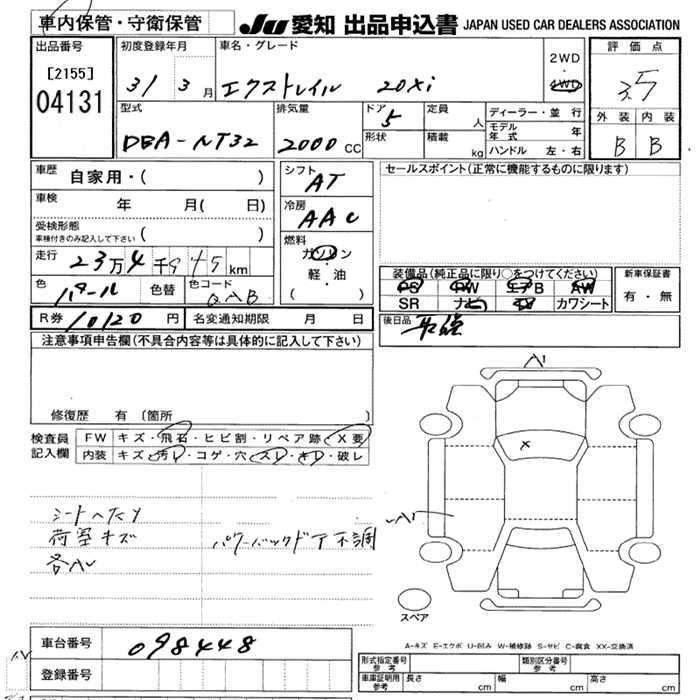 車内保管・守衛保管 JU 愛知 出品申込書 JAPAN USED CAR DEALERS ASSOCIATION
出品番号 初度登録年月 車名・グレード 2WD・4WD 評価点
[2155] 31 3月 エクストレイル 20xi 3.5
04131 型式 排気量 ドア 5 定員 人 ディーラー・並行 外装 内装
モデル年式 年
DBA-NT32 2000 CC 形状 積載 kg ハンドル 左・右 B B
車歴 自家用・( ) シフト AT セールスポイント(正常に機能するものに限ります)
車検 年 月( 日) 冷房 AAC
受検形態 ( )
車検付きのみ記入して下さい
燃料 ガソリン
走行 23万4千945km 軽・油 装備品(純正品に限り○をつけてください) 新車保証書
色 パール 色替 色コード QAB ( ) PS PW エアB AW 有・無
SR ナビ カワシート
R券 10120円 名変通知期限 月 日 後日品
注意事項申告欄(不具合内容等は具体的に記入して下さい)
A1
修復歴 有 [箇所 ]
検査員記入欄 FW キズ・飛石・ヒビ割・リペア跡・X要
内装 キズ・汚レ・コゲ・穴・スレ・キレ・破レ
X
シートヘタリ A1
荷室キズ パワーバックドア不調
各AU
スペア
車台番号 098448 A-キズ E-エクボ U-凹み W-補修跡 S-サビ C-腐食 XX-交換済
登録番号 形式指定番号 参考 類別区分番号 参考
車庫証明用 参考 長さ cm 幅 cm 高さ cm